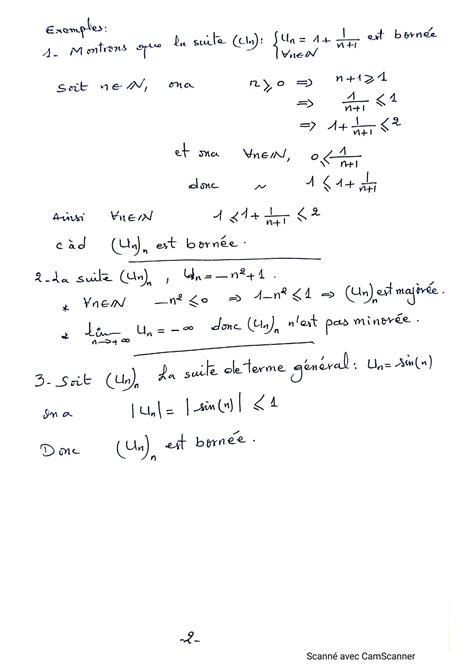 Exemples:
1- Montrons que la suite (Un): { Un = 1 + 1/(n+1) est bornée
∀n∈ℕ
Soit n∈ℕ, ona n ⩾ 0 ⇒ n+1 ⩾ 1
⇒ 1/(n+1) ⩽ 1
⇒ 1 + 1/(n+1) ⩽ 2
et ona ∀n∈ℕ, 0 ⩽ 1/(n+1)
donc ~ 1 ⩽ 1 + 1/(n+1)
Ainsi ∀n∈ℕ 1 ⩽ 1 + 1/(n+1) ⩽ 2
càd (Un)n est bornée.
2- La suite (Un)n , Un = -n² + 1.
* ∀n∈ℕ -n² ⩽ 0 ⇒ 1-n² ⩽ 1 ⇒ (Un)n est majorée.
* lim n→+∞ Un = -∞ donc (Un)n n'est pas minorée.
3- Soit (Un)n la suite de terme général: Un = sin(n)
ona |Un| = |sin(n)| ⩽ 1
Donc (Un)n est bornée.
-2-
Scanné avec CamScanner